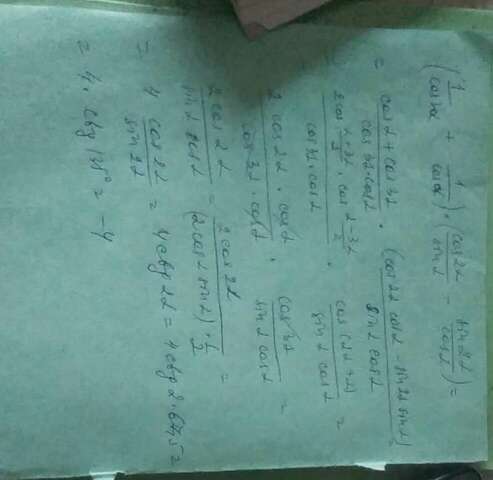 (1/cos3α + 1/cosα) · (cos2α/sinα − sin2α/cosα) =
= (cosα + cos3α)/(cos3α · cosα) · (cos2α cosα − sin2α sinα)/(sinα cosα)
= (2cos (α+3α)/2 · cos (α−3α)/2)/(cos3α · cosα) · cos(2α+α)/(sinα cosα) =
(2 cos2α · cosα)/(cos3α · cosα) · cos3α/(sinα cosα) =
2 cos2α/(sinα cosα) = 2 cos2α/((2cosα sinα) · 1/2) =
= 4 cos2α/sin2α = 4ctg2α = 4ctg2·67,5=
= 4 · ctg135° = −4